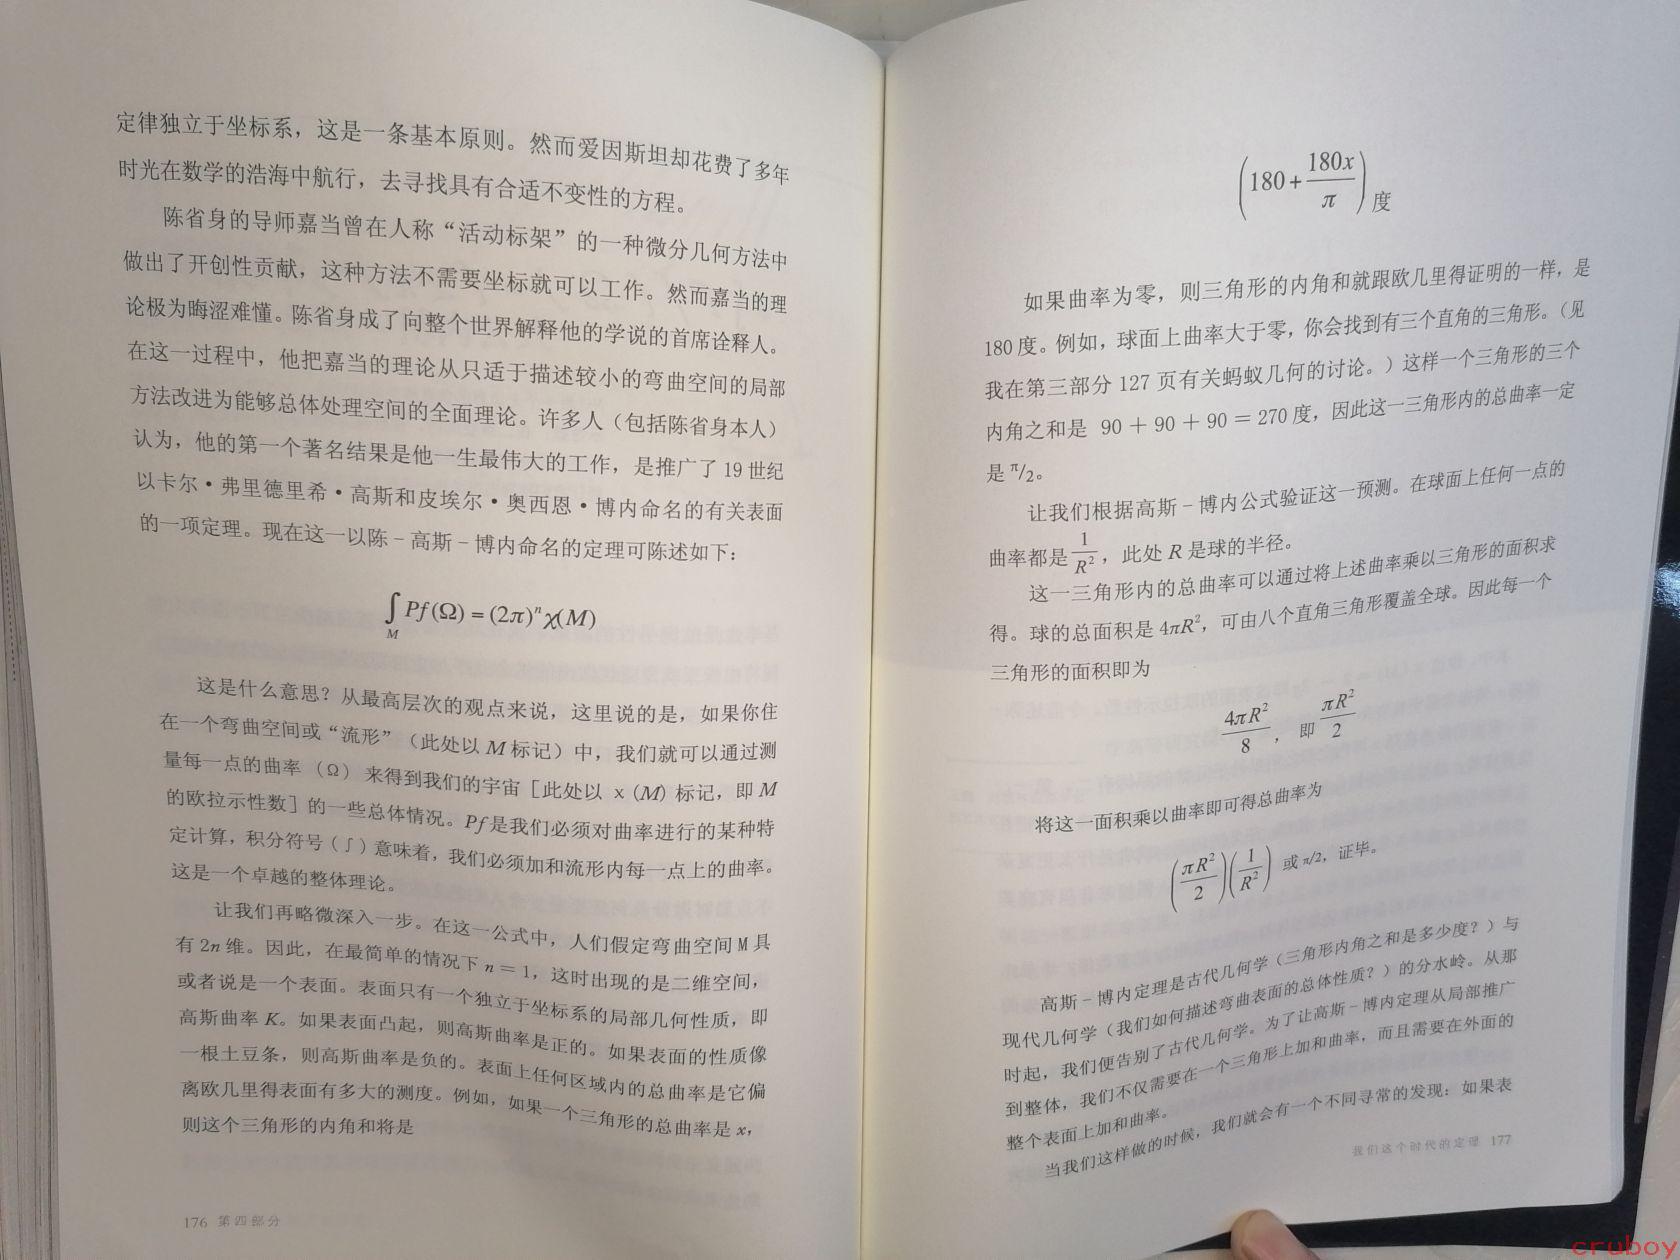 定律独立于坐标系，这是一条基本原则。然而爱因斯坦却花费了多年
时光在数学的浩海中航行，去寻找具有合适不变性的方程。
陈省身的导师嘉当曾在人称“活动标架”的一种微分几何方法中
做出了开创性贡献，这种方法不需要坐标就可以工作。然而嘉当的理
论极为晦涩难懂。陈省身成了向整个世界解释他的学说的首席诠释人。
在这一过程中，他把嘉当的理论从只适于描述较小的弯曲空间的局部
方法改进为能够总体处理空间的全面理论。许多人（包括陈省身本人）
认为，他的第一个著名结果是他一生最伟大的工作，是推广了 19 世纪
以卡尔·弗里德里希·高斯和皮埃尔·奥西恩·博内命名的有关表面
的一项定理。现在这一以陈－高斯－博内命名的定理可陈述如下：
∫_M Pf(Ω) = (2π)ⁿχ(M)
这是什么意思？从最高层次的观点来说，这里说的是，如果你住
在一个弯曲空间或“流形”（此处以 M 标记）中，我们就可以通过测
量每一点的曲率（Ω）来得到我们的宇宙［此处以 x (M) 标记，即 M
的欧拉示性数］的一些总体情况。Pf 是我们必须对曲率进行的某种特
定计算，积分符号（∫）意味着，我们必须加和流形内每一点上的曲率。
这是一个卓越的整体理论。
让我们再略微深入一步。在这一公式中，人们假定弯曲空间 M 具
有 2n 维。因此，在最简单的情况下 n＝1，这时出现的是二维空间，
或者说是一个表面。表面只有一个独立于坐标系的局部几何性质，即
高斯曲率 K。如果表面凸起，则高斯曲率是正的。如果表面的性质像
一根土豆条，则高斯曲率是负的。表面上任何区域内的总曲率是它偏
离欧几里得表面有多大的测度。例如，如果一个三角形的总曲率是 x，
则这个三角形的内角和将是
176 第四部分
(180 + 180x/π) 度
如果曲率为零，则三角形的内角和就跟欧几里得证明的一样，是
180 度。例如，球面上曲率大于零，你会找到有三个直角的三角形。（见
我在第三部分 127 页有关蚂蚁几何的讨论。）这样一个三角形的三个
内角之和是 90＋90＋90＝270 度，因此这一三角形内的总曲率一定
是 π/2。
让我们根据高斯－博内公式验证这一预测。在球面上任何一点的
曲率都是 1/R²，此处 R 是球的半径。
这一三角形内的总曲率可以通过将上述曲率乘以三角形的面积求
得。球的总面积是 4πR²，可由八个直角三角形覆盖全球。因此每一个
三角形的面积即为
4πR²/8，即 πR²/2
将这一面积乘以曲率即可得总曲率为
(πR²/2)(1/R²) 或 π/2，证毕。
高斯－博内定理是古代几何学（三角形内角之和是多少度？）与
现代几何学（我们如何描述弯曲表面的总体性质？）的分水岭。从那
时起，我们便告别了古代几何学。为了让高斯－博内定理从局部推广
到整体，我们不仅需要在一个三角形上加和曲率，而且需要在外面的
整个表面上加和曲率。
当我们这样做的时候，我们就会有一个不同寻常的发现：如果表
我们这个时代的定理 177
cruboy